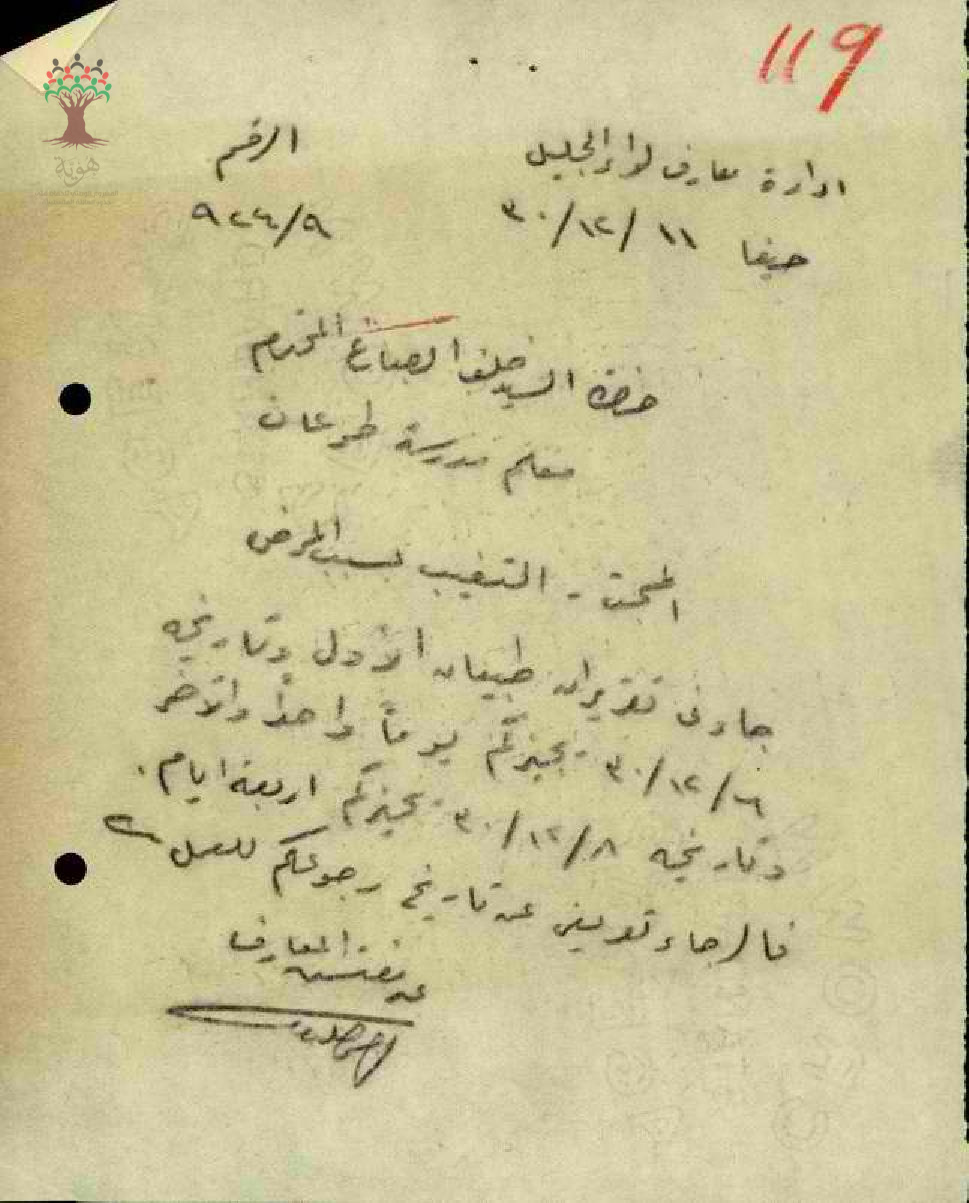 119
هوية
ادارة معارف لواء الجليل
الرقم
حيفا ١١/١٢/٣٠
٩/٩٢٤
حضرة السيد خليف الصباغ المحترم
معلم مدرسة طرعان
المبحث - التغيب بسبب المرض
جاءني تقريران طبيان الأول وتاريخه
٦/١٢/٣٠ يجيزكم يوماً واحداً والآخر
وتاريخه ٨/١٢/٣٠ يجيزكم اربعة ايام.
فالرجاء تعريفي عن تاريخ رجوعكم للعمل
عن مفتش المعارف